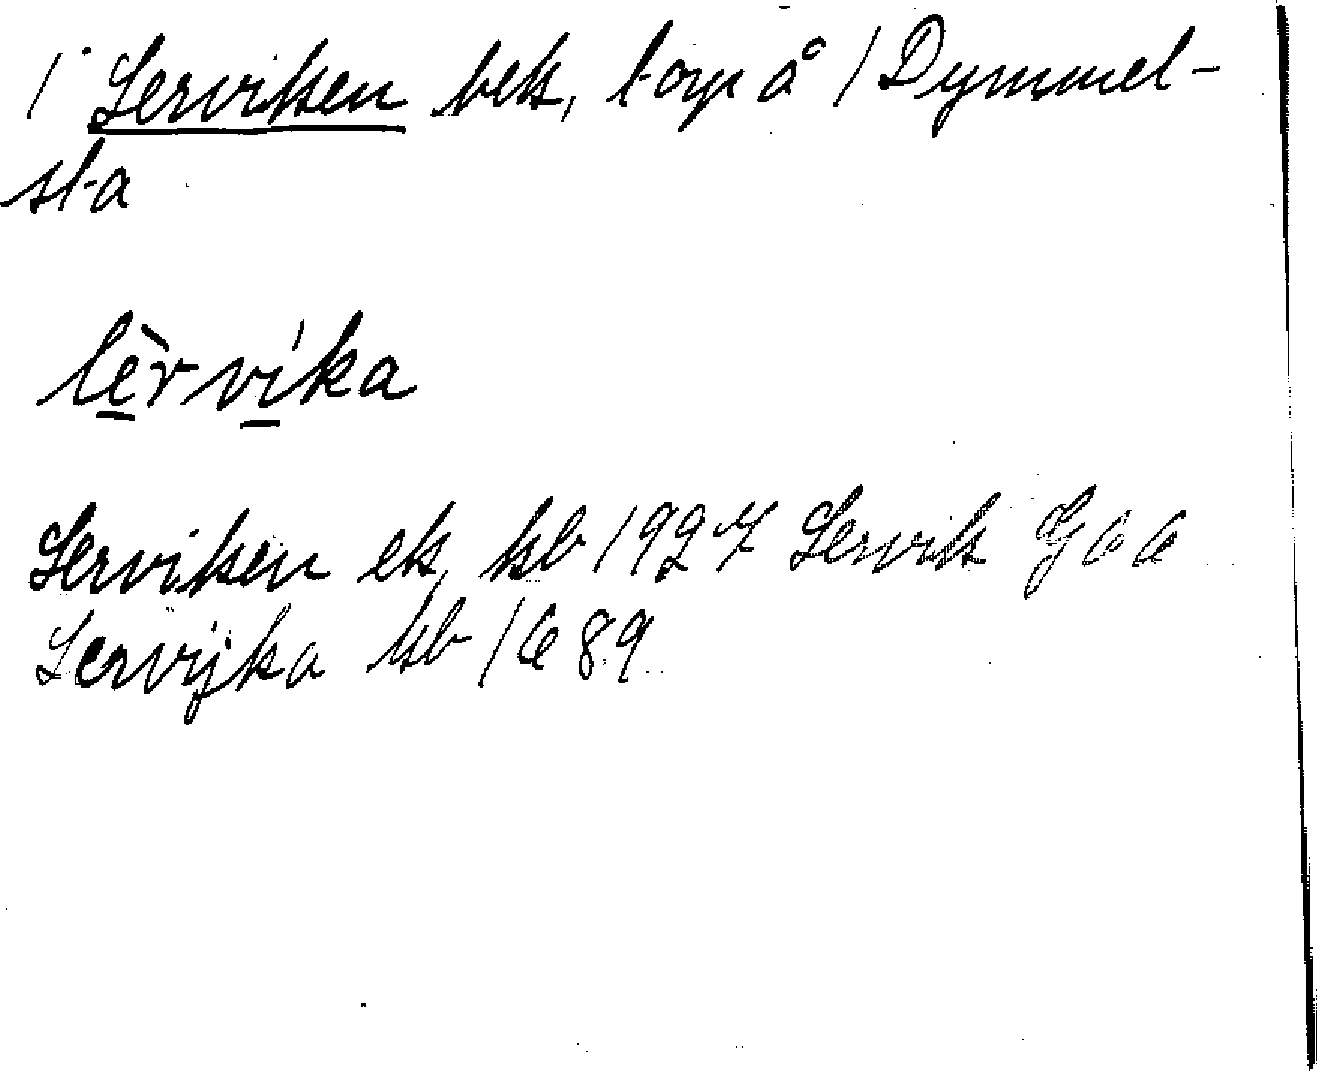 / Lerviken bek, torp å / Dymmel-
sta
lèrvíka
Lerviken ek, kb 1927 Lervik G66
Lervijka kb 1689